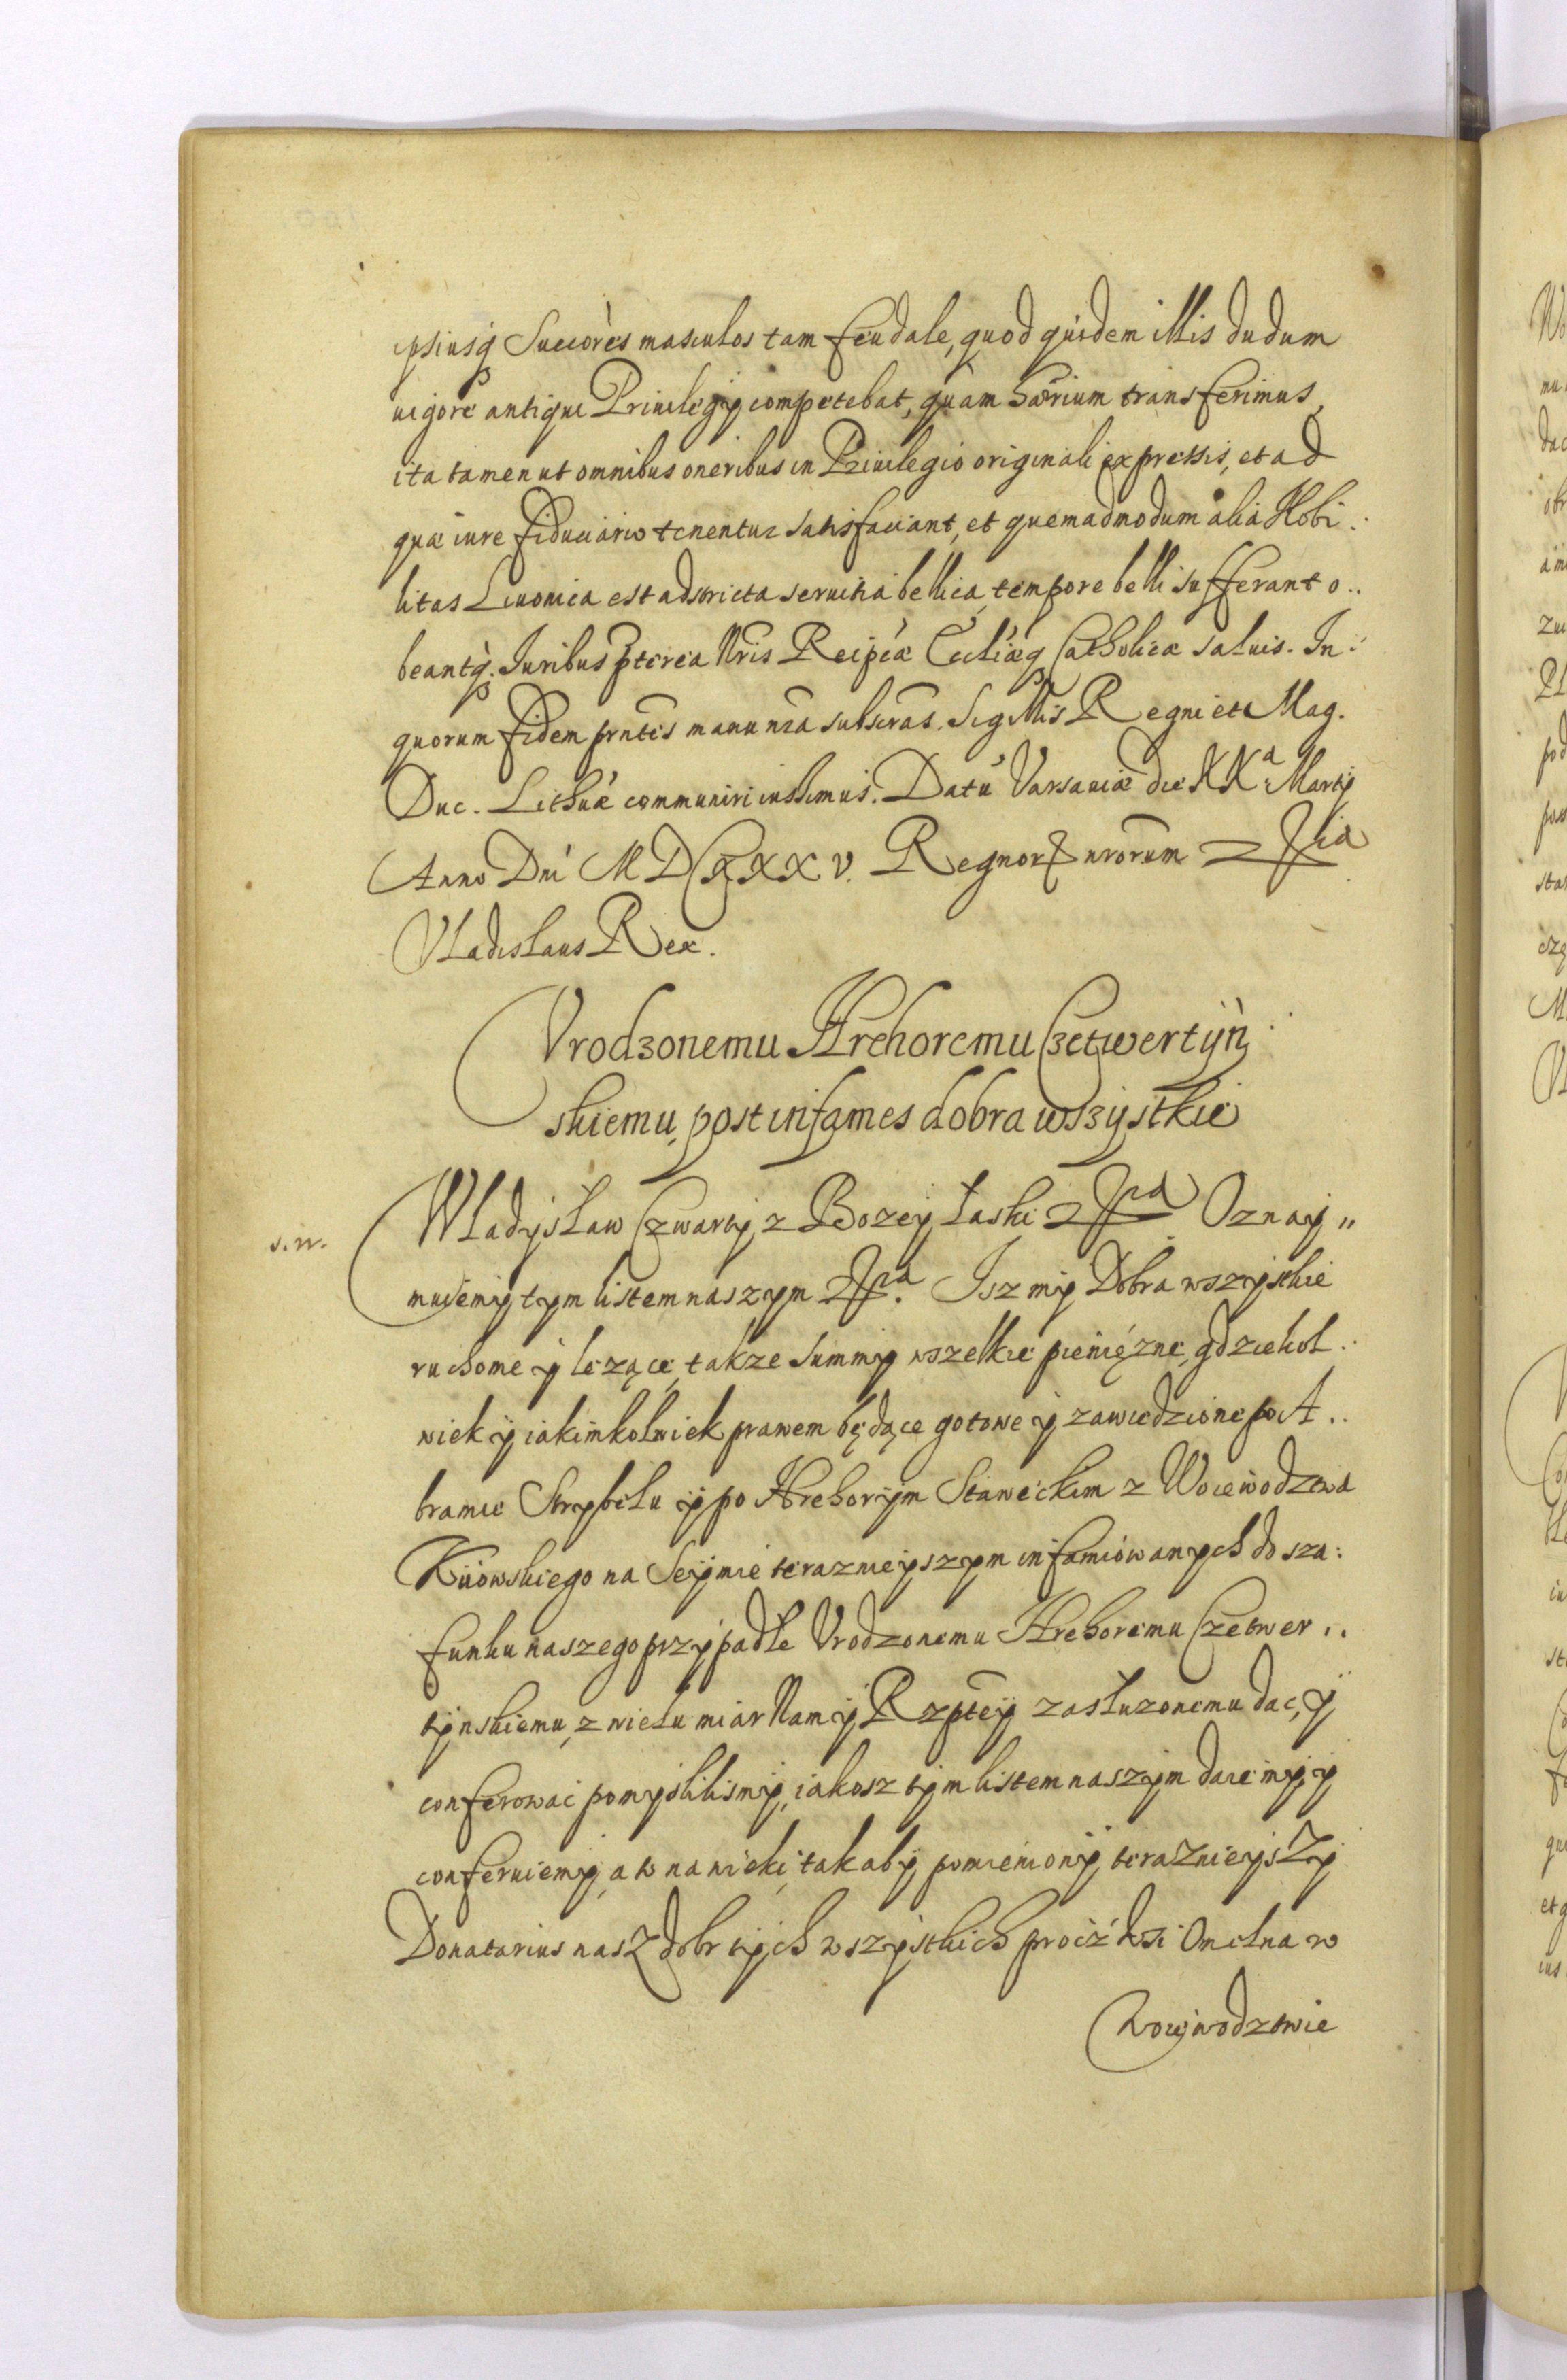 ipsiusq Succores masculos tam feudale, quod quidem illis dudum
uigore antiqui Priuilegij competebat, quam haerium transferimus,
ita tamen ut omnibus oneribus in Priuilegio originali expressis, et ad
quae iure fiduciario tenentur satisfaciant, et quemadmodum alia Nobi:
litas Liuonica est adstricta seruitia bellica, tempore belli sufferant o..
beantq. Iuribus ptcrea Nris Reipcae Eccliaeq Catholicae saluis. In:
quorum fidem pntes manu nra subscras. Sigillis Regni et Mag.
Duc. Lithuae communiri iussimus. Datu Varsauiae die XXa Martij
Anno Dni MDCXXXV. Regnor nrorum
Vladislaus Rex.
Vrodzonemu Hrehoremu Czetwertyn:
skiemu, post infames dobra wszystkie
s. w.
Władysław Czwarty z Bozey Łaski Oznay„
muiemy tym listem naszym Isz my Dobra wszystkie
ruchome y lezące, takze summy wszelkie pienięzne, gdziekol:
wiek y iakimkolwiek prawem będące gotowe y zawiedzione po A..
bramie Strybelu y po Hrehorym Staweckim z Woiewodztwa
Kiiowskiego na Seymie terazneyszym infamiowanych do sza:
funku naszego przypadłe Vrodzonemu Hrehoremu Czetwer..
tynskiemu, z wielu miar Nam y Rzptey zasłuzonemu dac, y
conferowac pomyslilismy, iakosz tym listem naszym daiemy y
conferuiemy, a to na wieki, tak aby pomieniony teraznieyszy
Donatarius nasz dobr tych wszystkich procz wsi Omelna w
Woiewodztwie